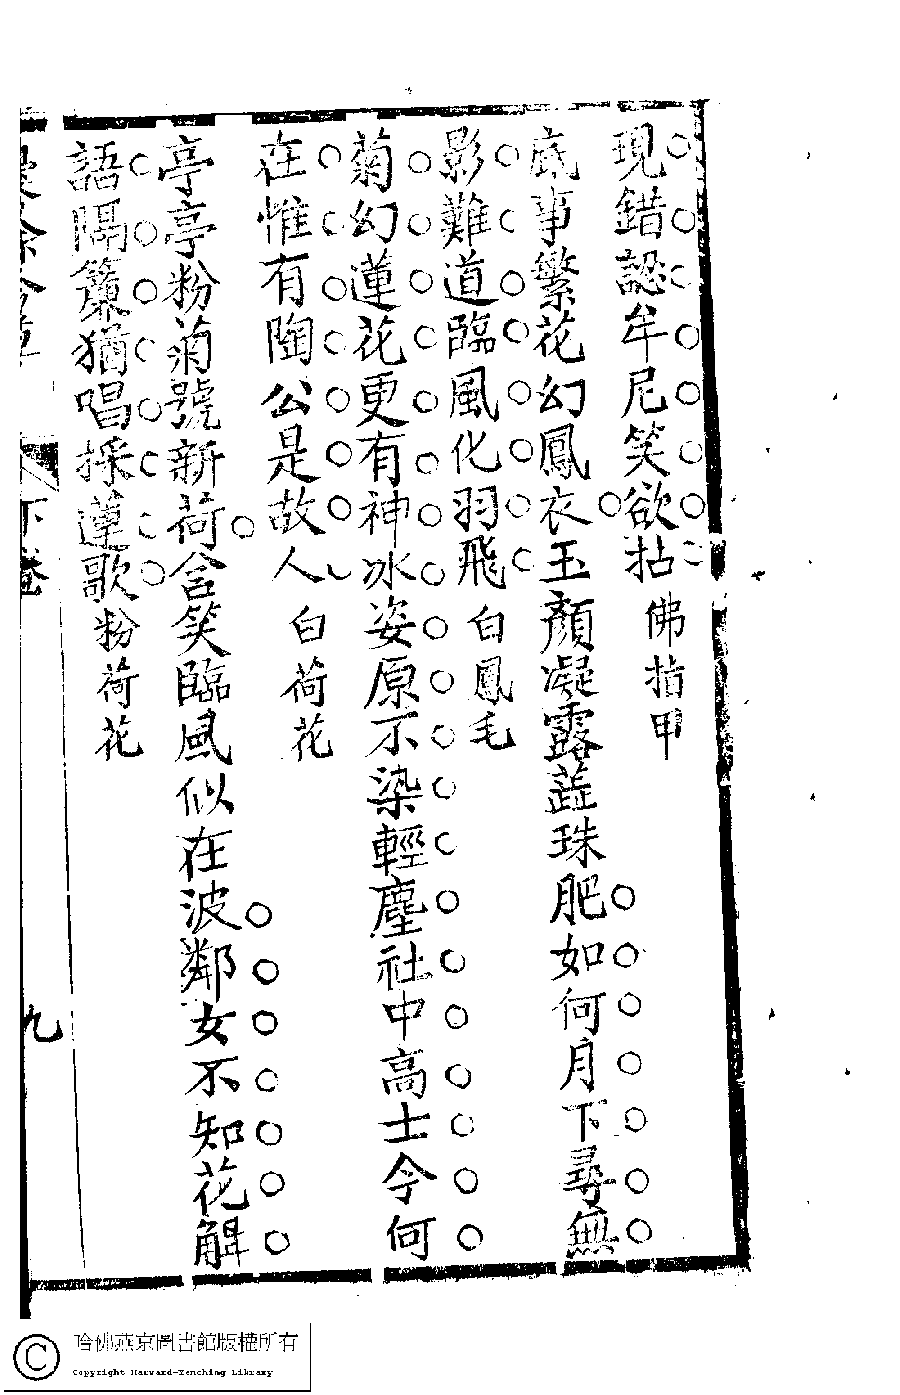 現錯認牟尼笑欲拈佛指甲
底事繁花幻鳳衣玉顏凝露蕋珠肥如何月下尋無
影難道臨風化羽飛白鳳毛
菊幻蓮花更有神冰姿原不染輕塵社中高士今何
在惟有陶公是故人白荷花
亭亭粉菊號新荷含笑臨風似在波鄰女不知花解
語隔簾猶唱採蓮歌粉荷花
下卷
九
哈佛燕京圖書館版權所有
Copyright Harvard-Yenching Library